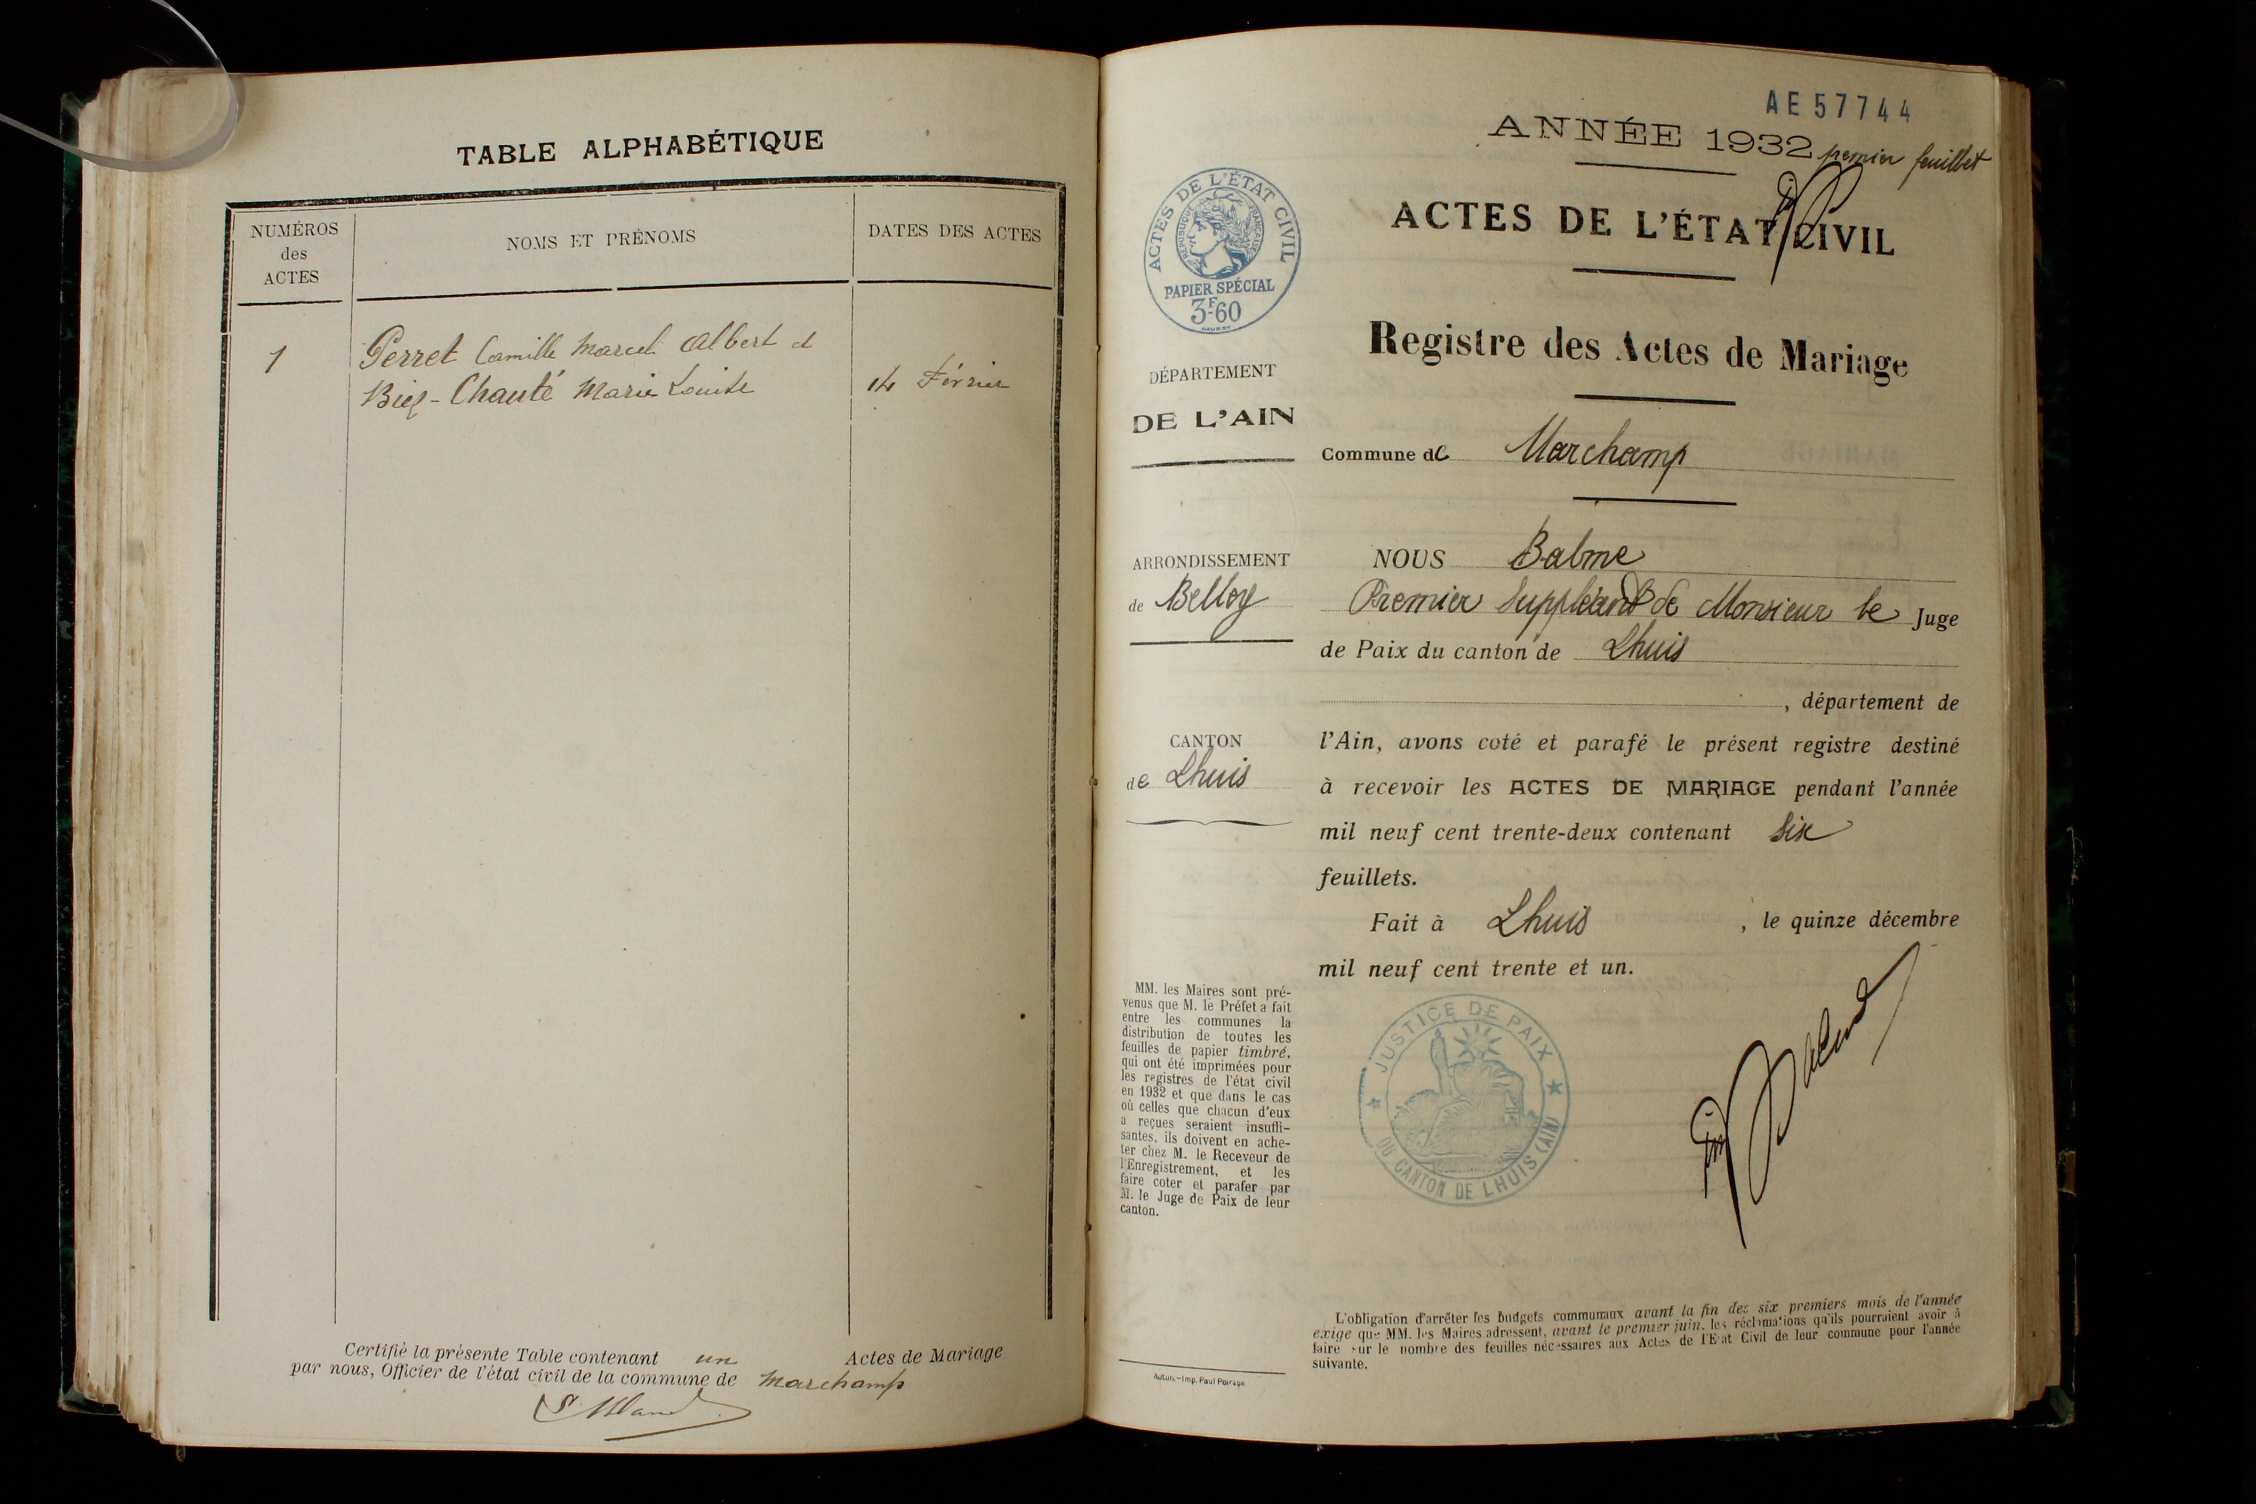 TABLE ALPHABÉTIQUE
NUMÉROS
des
ACTES
NOMS ET PRÉNOMS
DATES DES ACTES
1
Perret Camille Marcel Albert et
Chauté Marie Louise
14 Février
Certifié la présente Table contenant un Actes de Mariage
par nous, Officier de l'état civil de la commune de Marchamp
AE57744
ANNÉE 1932
premier feuillet
ACTES DE L'ÉTAT CIVIL
Registre des Actes de Mariage
ACTES DE L'ÉTAT CIVIL
RÉPUBLIQUE FRANÇAISE
PAPIER SPÉCIAL
3F.60
DÉPARTEMENT
DE L'AIN
Commune de Marchamp
ARRONDISSEMENT
de Belley
CANTON
de Lhuis
NOUS Balme
Premier Suppléant de Monsieur le Juge
de Paix du canton de Lhuis
, département de
l'Ain, avons coté et parafé le présent registre destiné
à recevoir les ACTES DE MARIAGE pendant l'année
mil neuf cent trente-deux contenant six
feuillets.
Fait à Lhuis , le quinze décembre
mil neuf cent trente et un.
MM. les Maires sont pré-
venus que M. le Préfet a fait
entre les communes la
distribution de toutes les
feuilles de papier timbré,
qui ont été imprimées pour
les registres de l'état civil
en 1932 et que dans le cas
où celles que chacun d'eux
a reçues seraient insuffi-
santes, ils doivent en ache-
ter chez M. le Receveur de
l'Enregistrement, et les
faire coter et parafer par
M. le Juge de Paix de leur
canton.
JUSTICE DE PAIX
DU CANTON DE LHUIS (AIN)
L'obligation d'arrêter les budgets communaux avant la fin des six premiers mois de l'année
exige que MM. les Maires adressent, avant le premier juin, les réclamations qu'ils pourraient avoir à
faire sur le nombre des feuilles nécessaires aux Actes de l'Etat Civil de leur commune pour l'année
suivante.
Autun. - Imp. Paul Poirson